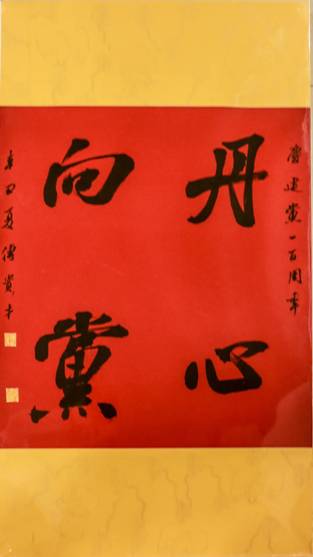 慶建黨一百周年
丹心
向黨
辛丑夏傅貴才